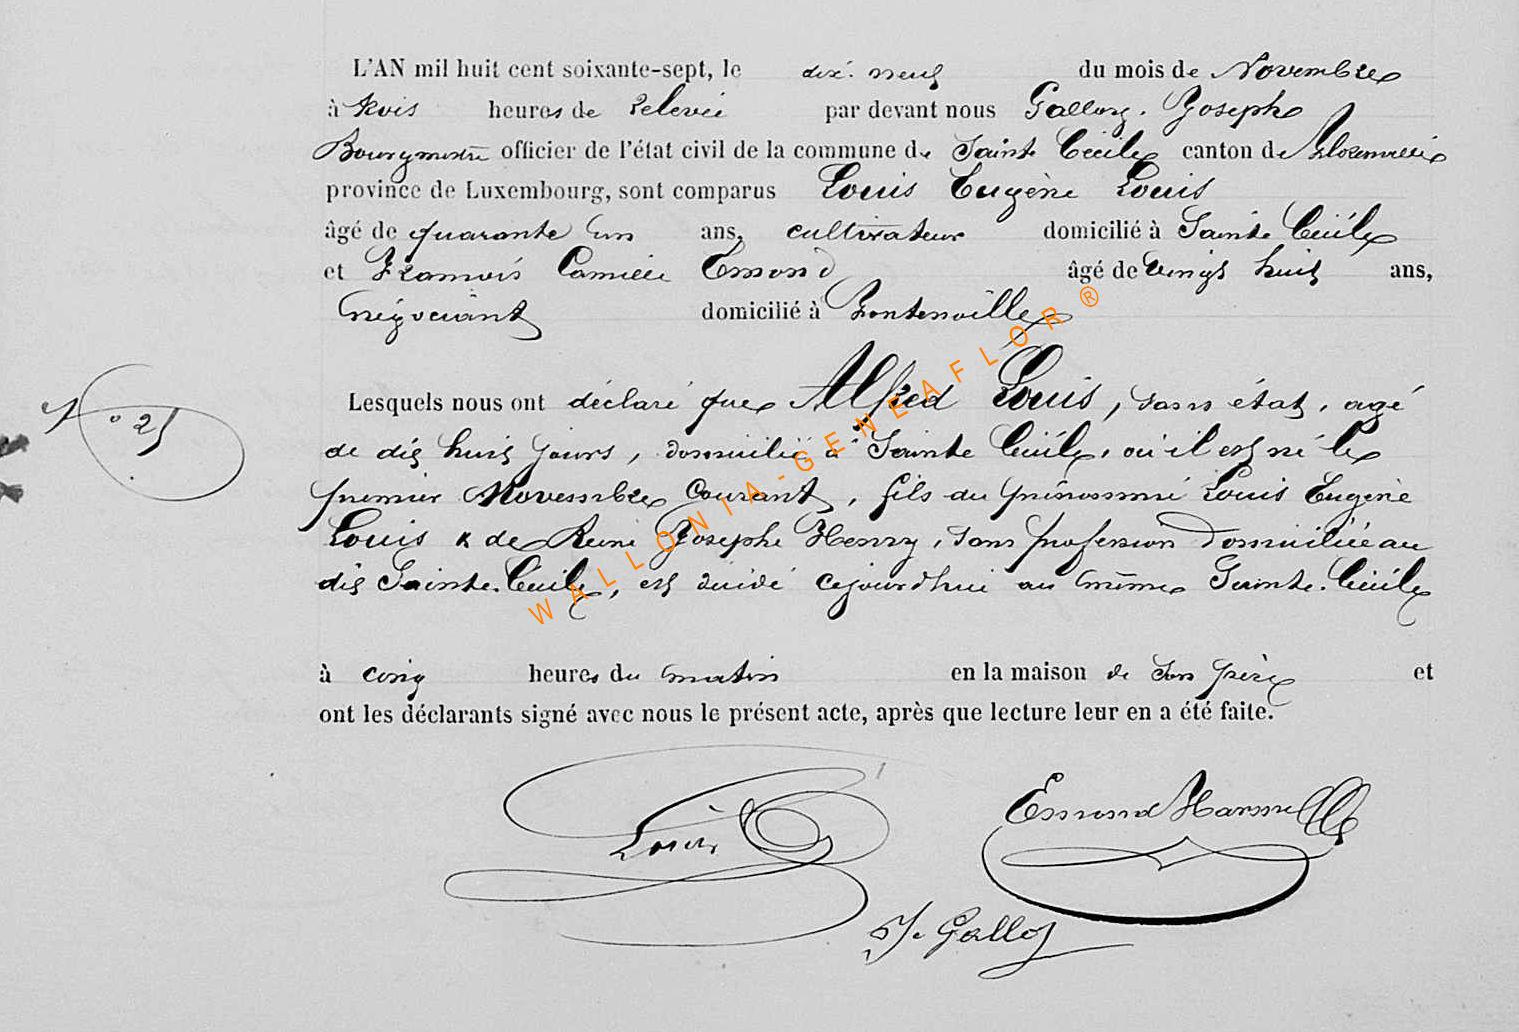 L'AN mil huit cent soixante-sept, le dix-neuf du mois de Novembre
à trois heures de relevée par devant nous Galloy, Joseph
Bourgmestre officier de l'état civil de la commune de Sainte Cécile canton de Florenville
province de Luxembourg, sont comparus Louis Eugène Louis
âgé de quarante un ans, cultivateur domicilié à Sainte Cécile
et François Camille Emond âgé de vingt huit ans,
négociant domicilié à Fontenoille
Lesquels nous ont déclaré que Alfred Louis, sans état, agé
N° 25
de dix huit jours, domicilié à Sainte Cécile, où il est né le
premier Novembre courant, fils du prénommé Louis Eugène
Louis & de Reine Josephe Henry, sans profession domiciliée au
dit Sainte-Cécile, est décédé cejourd'hui au même Sainte-Cécile
à cinq heures du matin en la maison de son père et
ont les déclarants signé avec nous le présent acte, après que lecture leur en a été faite.
Louis
Emond
J. Galloy
WALLONIA-GENEAFLOR®